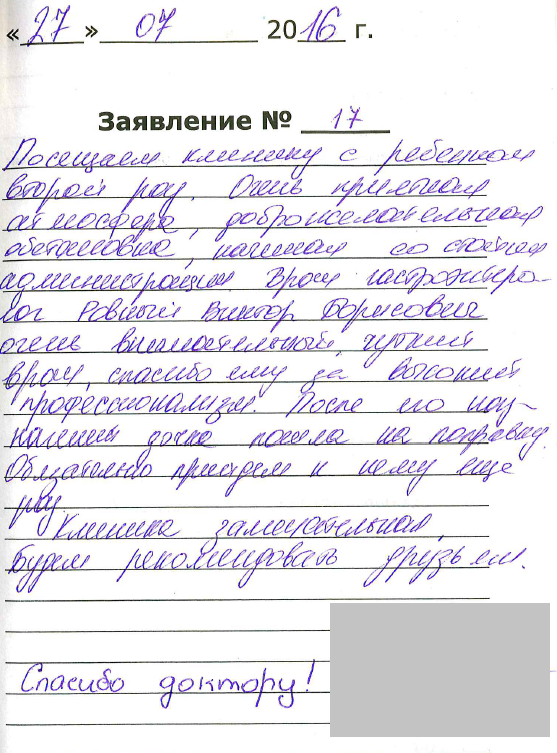 «27» 07 2016 г.
Заявление № 17
Посещаем клинику с ребенком
второй раз. Очень приятная
атмосфера, доброжелательная
обстановка, начиная со стойки
администрации. Врач гастроэнтеро-
лог Ровный Виктор Борисович
очень внимательный, чуткий
врач, спасибо ему за высокий
профессионализм. После его наз-
начения дочка пошла на поправку.
Обязательно приедем к нему еще
раз.
Клиника замечательная,
будем рекомендовать друзьям.
Спасибо доктору!